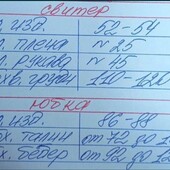 свитер
изд. 52-54
плеча ~ 25
рукава ~ 45
груди 110-120
юбка
изд. 86-88
талии от 72 до 1
бедер от 92 до 12